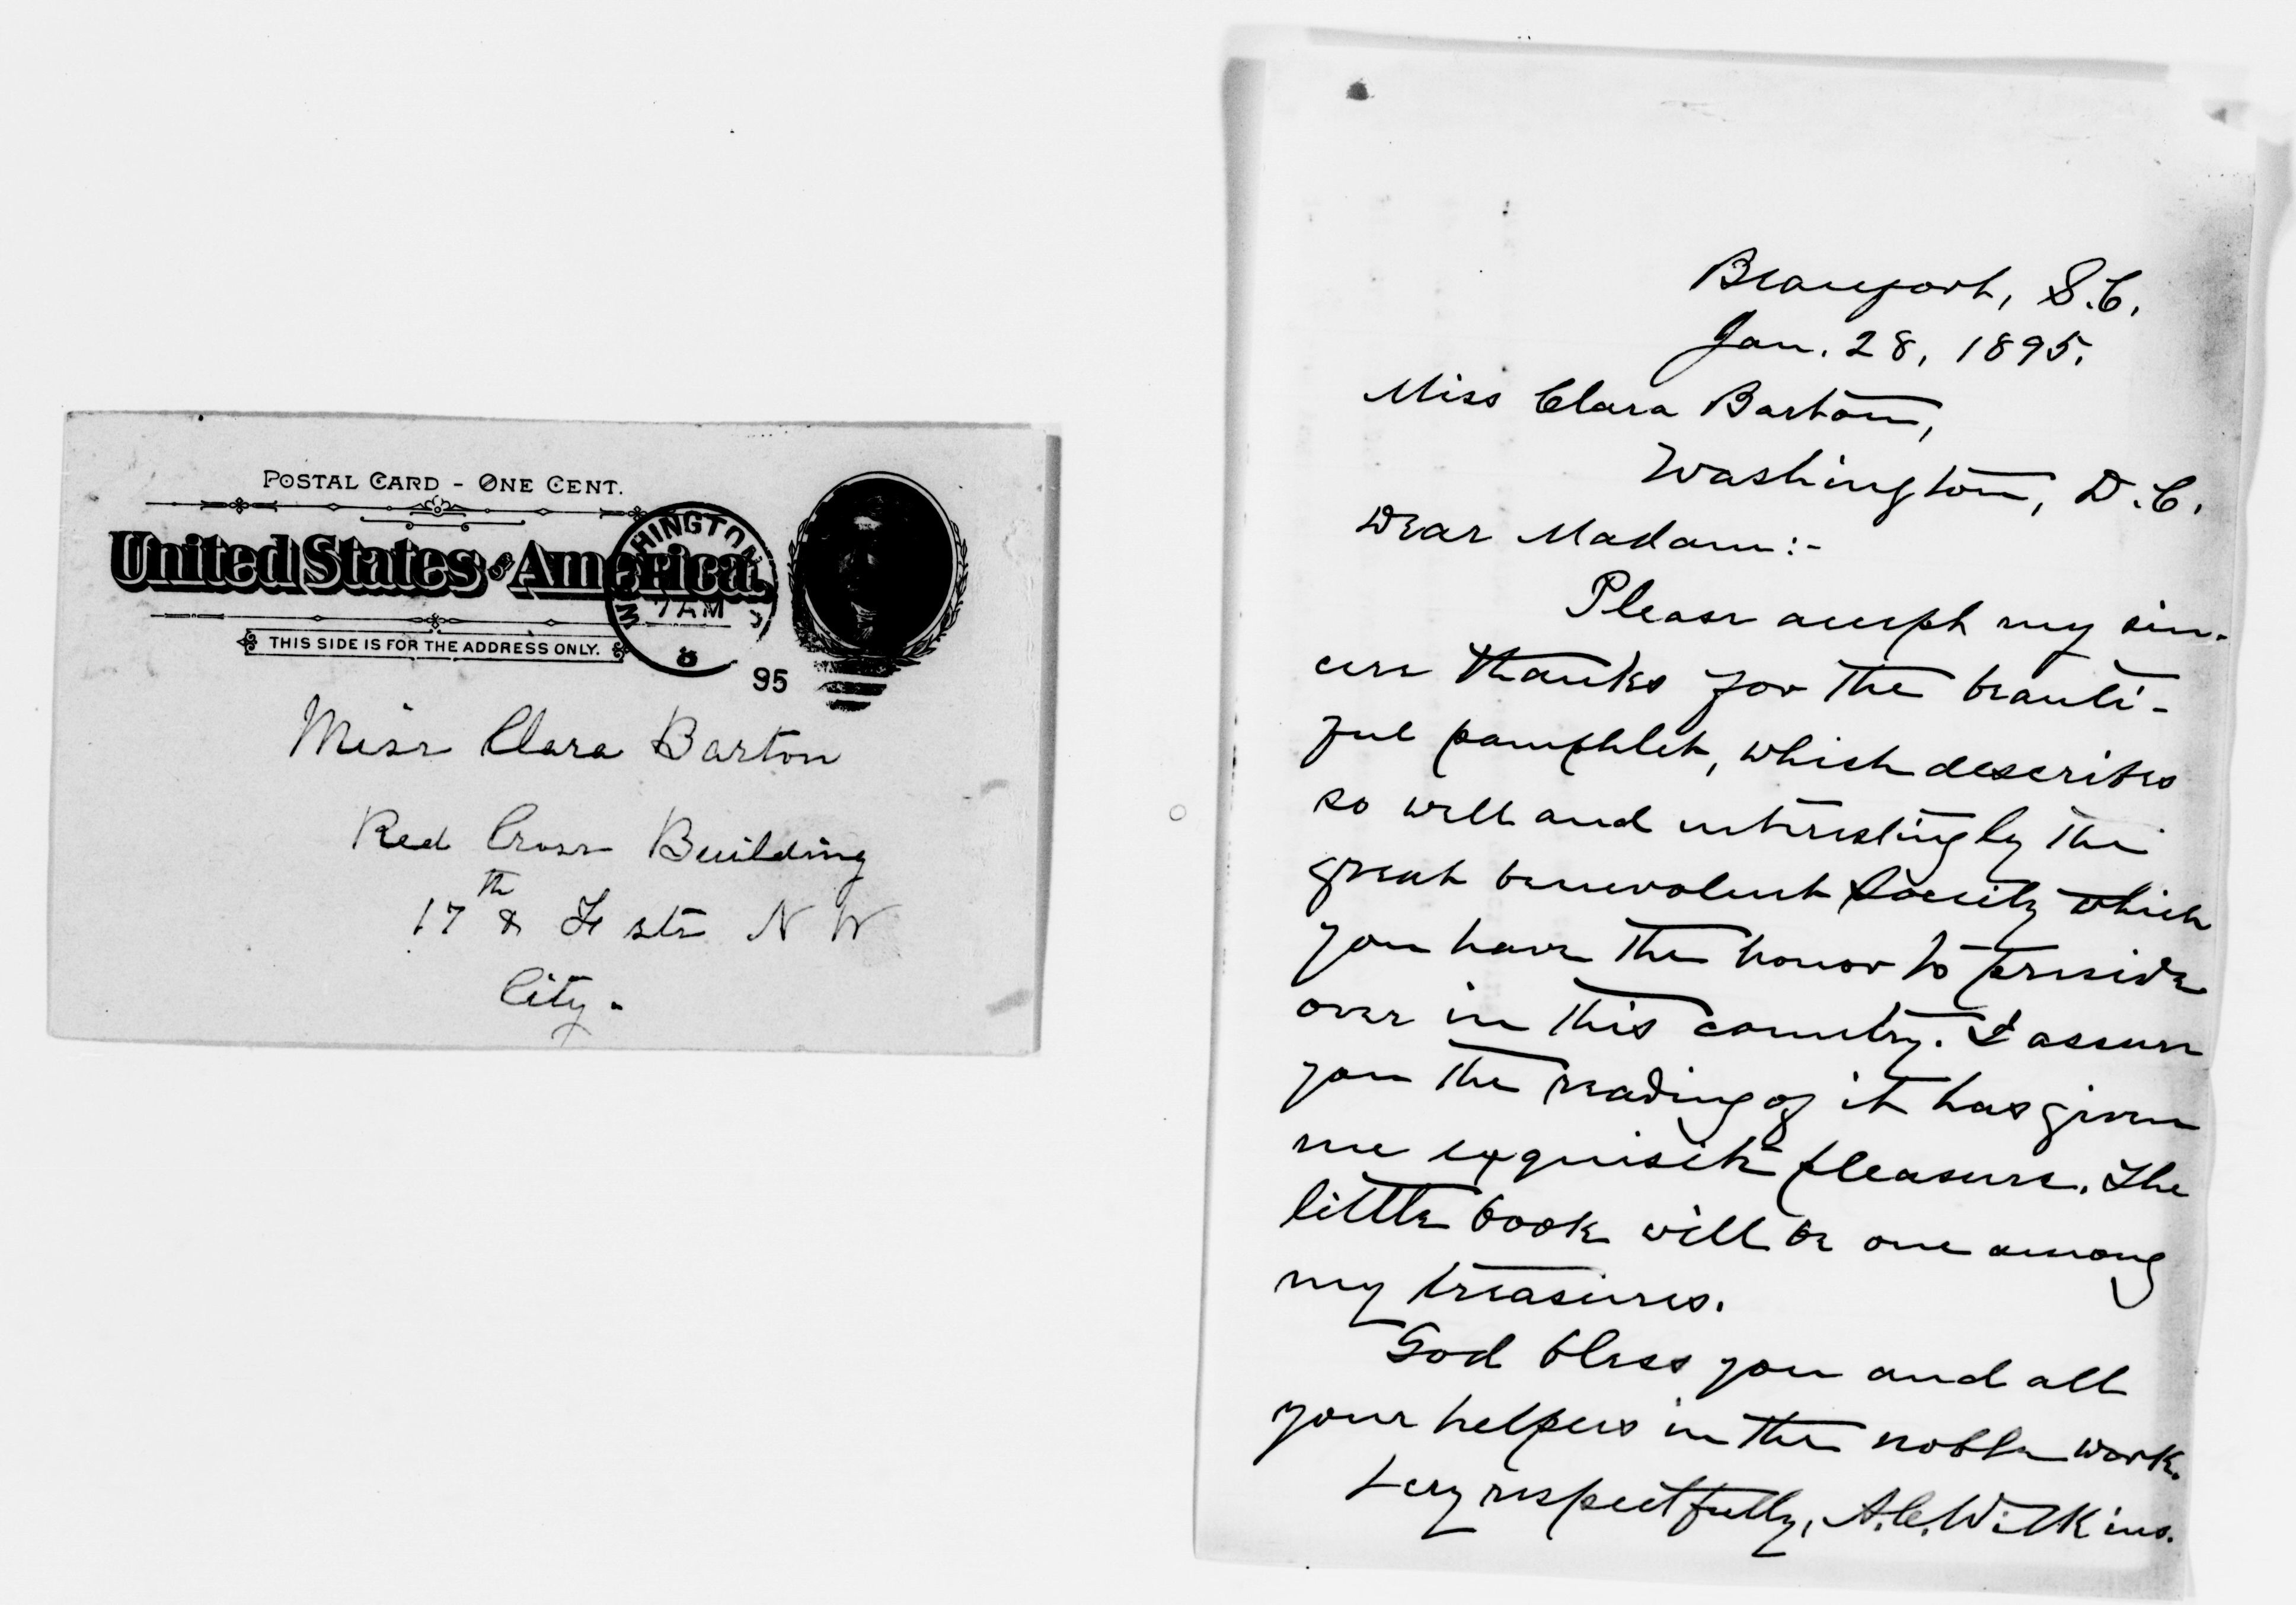 POSTAL CARD - ONE CENT.
United States of America.
WASHINGTON
7 AM
95
THIS SIDE IS FOR THE ADDRESS ONLY.
Miss Clara Barton
Red Cross Building
17th & F sts N W
City.
Beaufort, S.C.
Jan. 28, 1895.
Miss Clara Barton,
Washington, D.C.
Dear Madam:-
Please accept my sin-
cere thanks for the beauti-
ful pamphlet, which describes
so well and interestingly the
great benevolent Society which
you have the honor to preside
over in this country. I assure
you the reading of it has given
me exquisite pleasure. The
little book will be one among
my treasures.
God bless you and all
your helpers in the noble work.
Very respectfully, A.C. Wilkins.